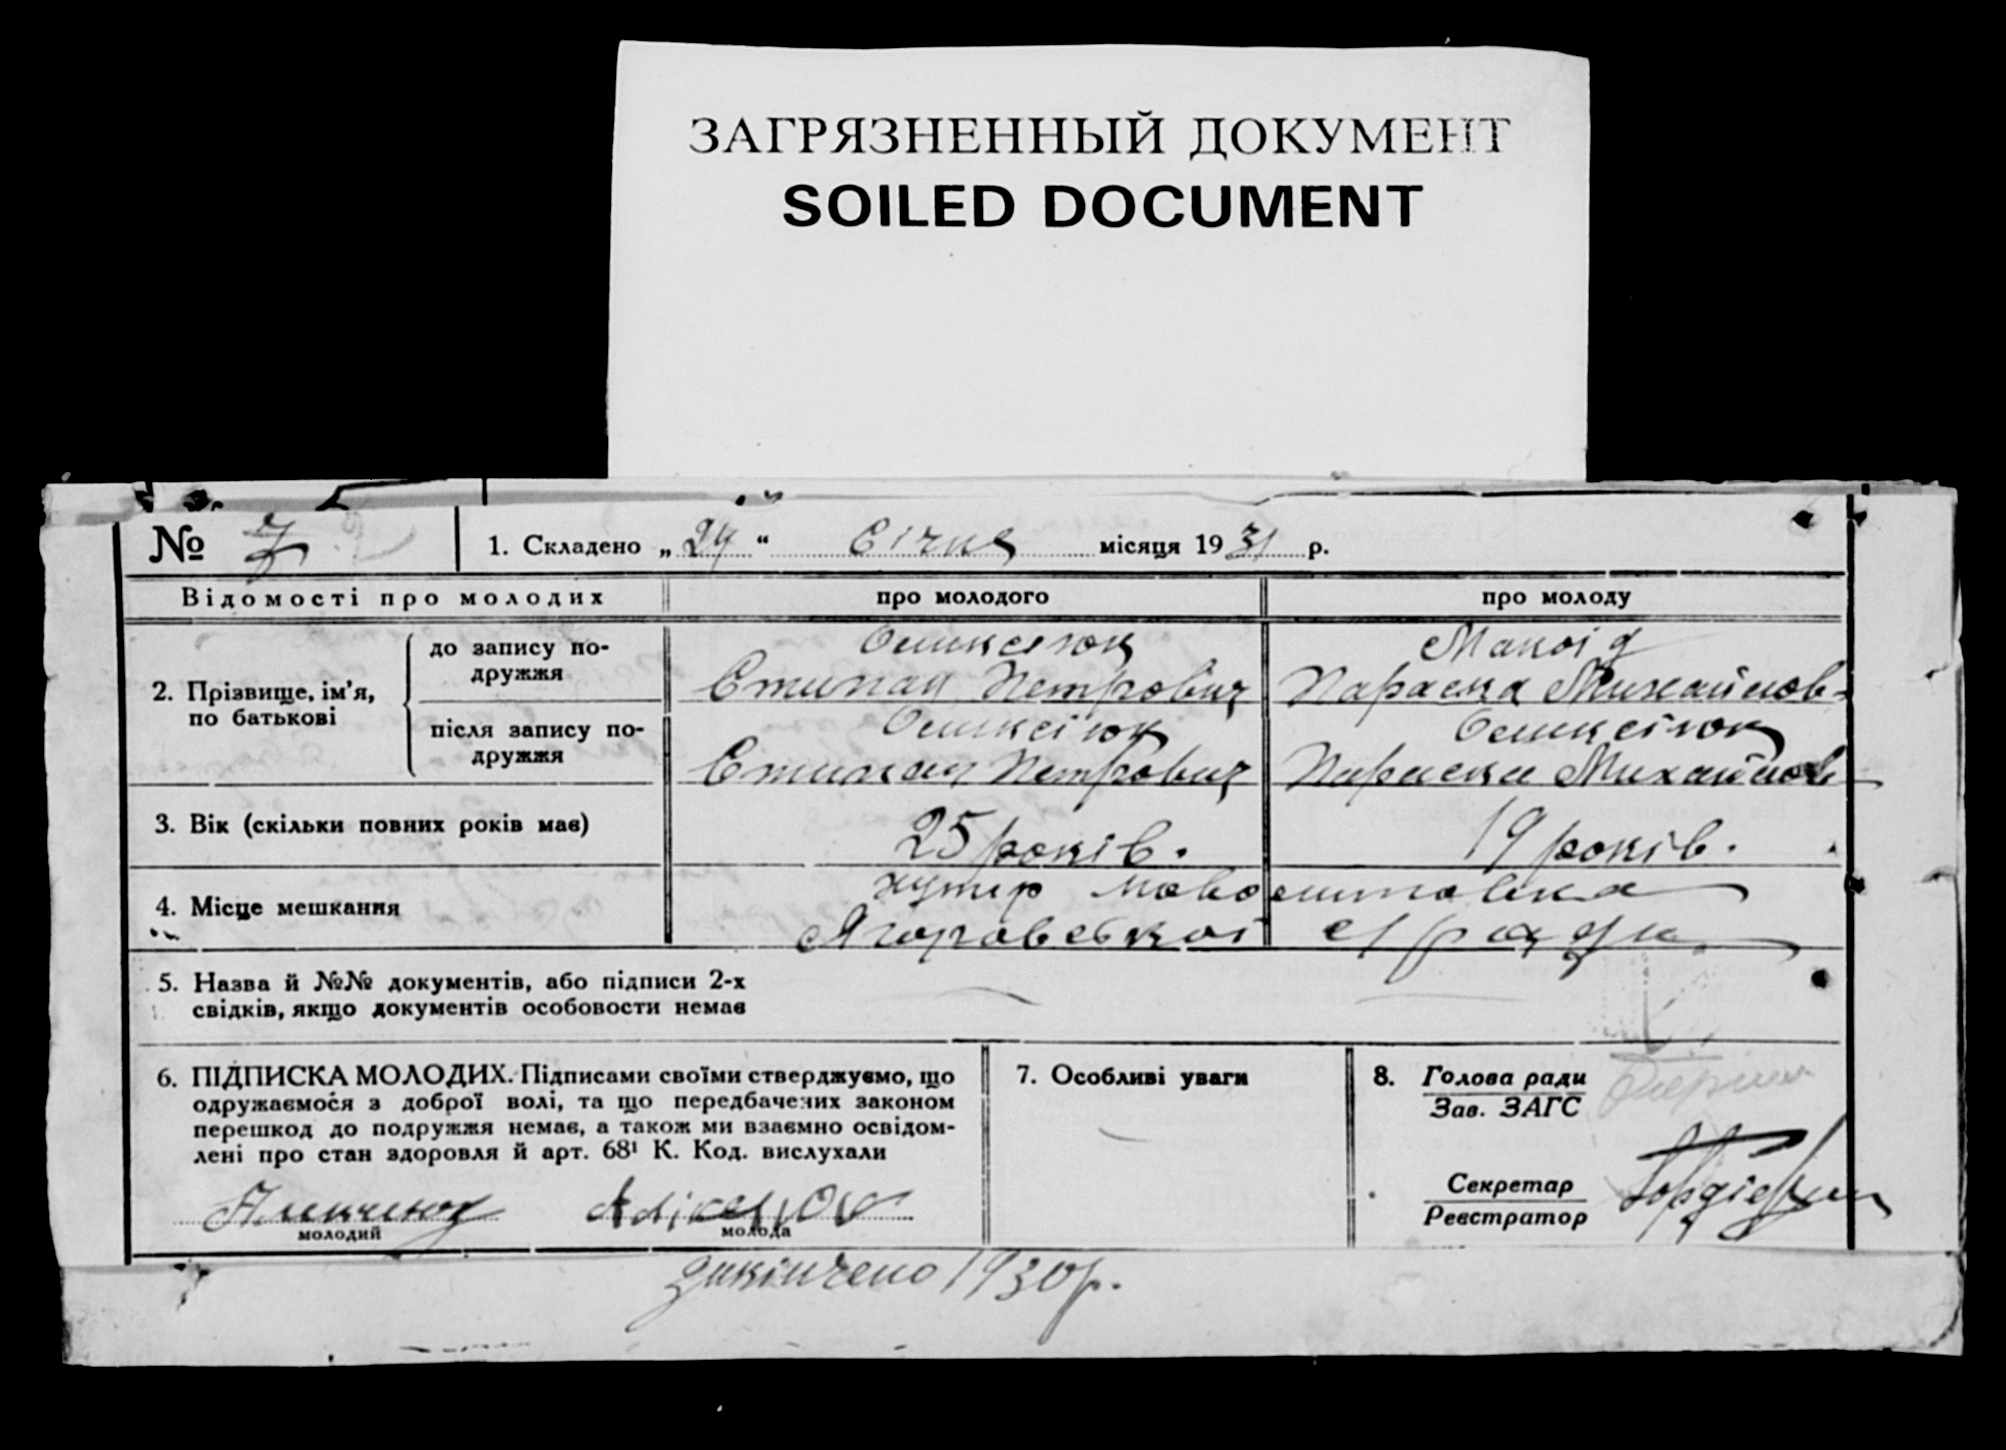 ЗАГРЯЗНЕННЫЙ ДОКУМЕНТ
SOILED DOCUMENT
№ 7 1. Складено „ 24 “ Січня місяця 19 31 р.
Відомості про молодих про молодого про молоду
2. Прізвище, ім’я, по батькові
до запису по-
дружжя
Степан Петрович Параска Михайлов-
після запису по-
дружжя
Степан Петрович Параска Михайлов
3. Вік (скільки повних років має) 25 років. 19 років.
4. Місце мешкання
хутір
5. Назва й №№ документів, або підписи 2-х
свідків, якщо документів особовости немає
6. ПІДПИСКА МОЛОДИХ. Підписами своїми стверджуємо, що
одружаємося з доброї волі, та що передбачених законом
перешкод до подружжя немає, а також ми взаємно освідом-
лені про стан здоровля й арт. 68¹ К. Код. вислухали
молодий молода
7. Особливі уваги
8. Голова ради
Зав. ЗАГС
Секретар
Реєстратор
закінчено 1930р.